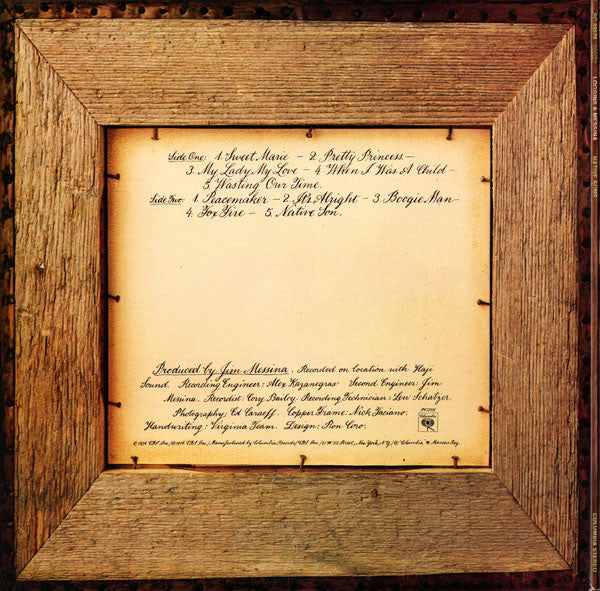 Side One: 1. Sweet Marie – 2. Pretty Princess –
3. My Lady, My Love – 4. When I Was A Child –
5. Wasting Our Time.
Side Two: 1. Peacemaker – 2. It's Alright – 3. Boogie Man –
4. Fox Fire – 5. Native Son.
Produced by Jim Messina. Recorded on location with Haji
Sound. Recording Engineer: Alex Kazanegras Second Engineer: Jim
Messina. Recordist: Cory Bailey. Recording Technician: Lew Schatzer.
Photography: Ed Caraeff. Copper Frame: Nick Faciano.
Handwriting: Virginia Team. Design: Ron Coro.
© 1976 CBS Inc./℗ 1976 CBS Inc./Manufactured by Columbia Records/CBS Inc./51 W 52 Street, New York, N.Y./® "Columbia" Marcas Reg.
LOGGINS & MESSINA NATIVE SONS
COLUMBIA STEREO